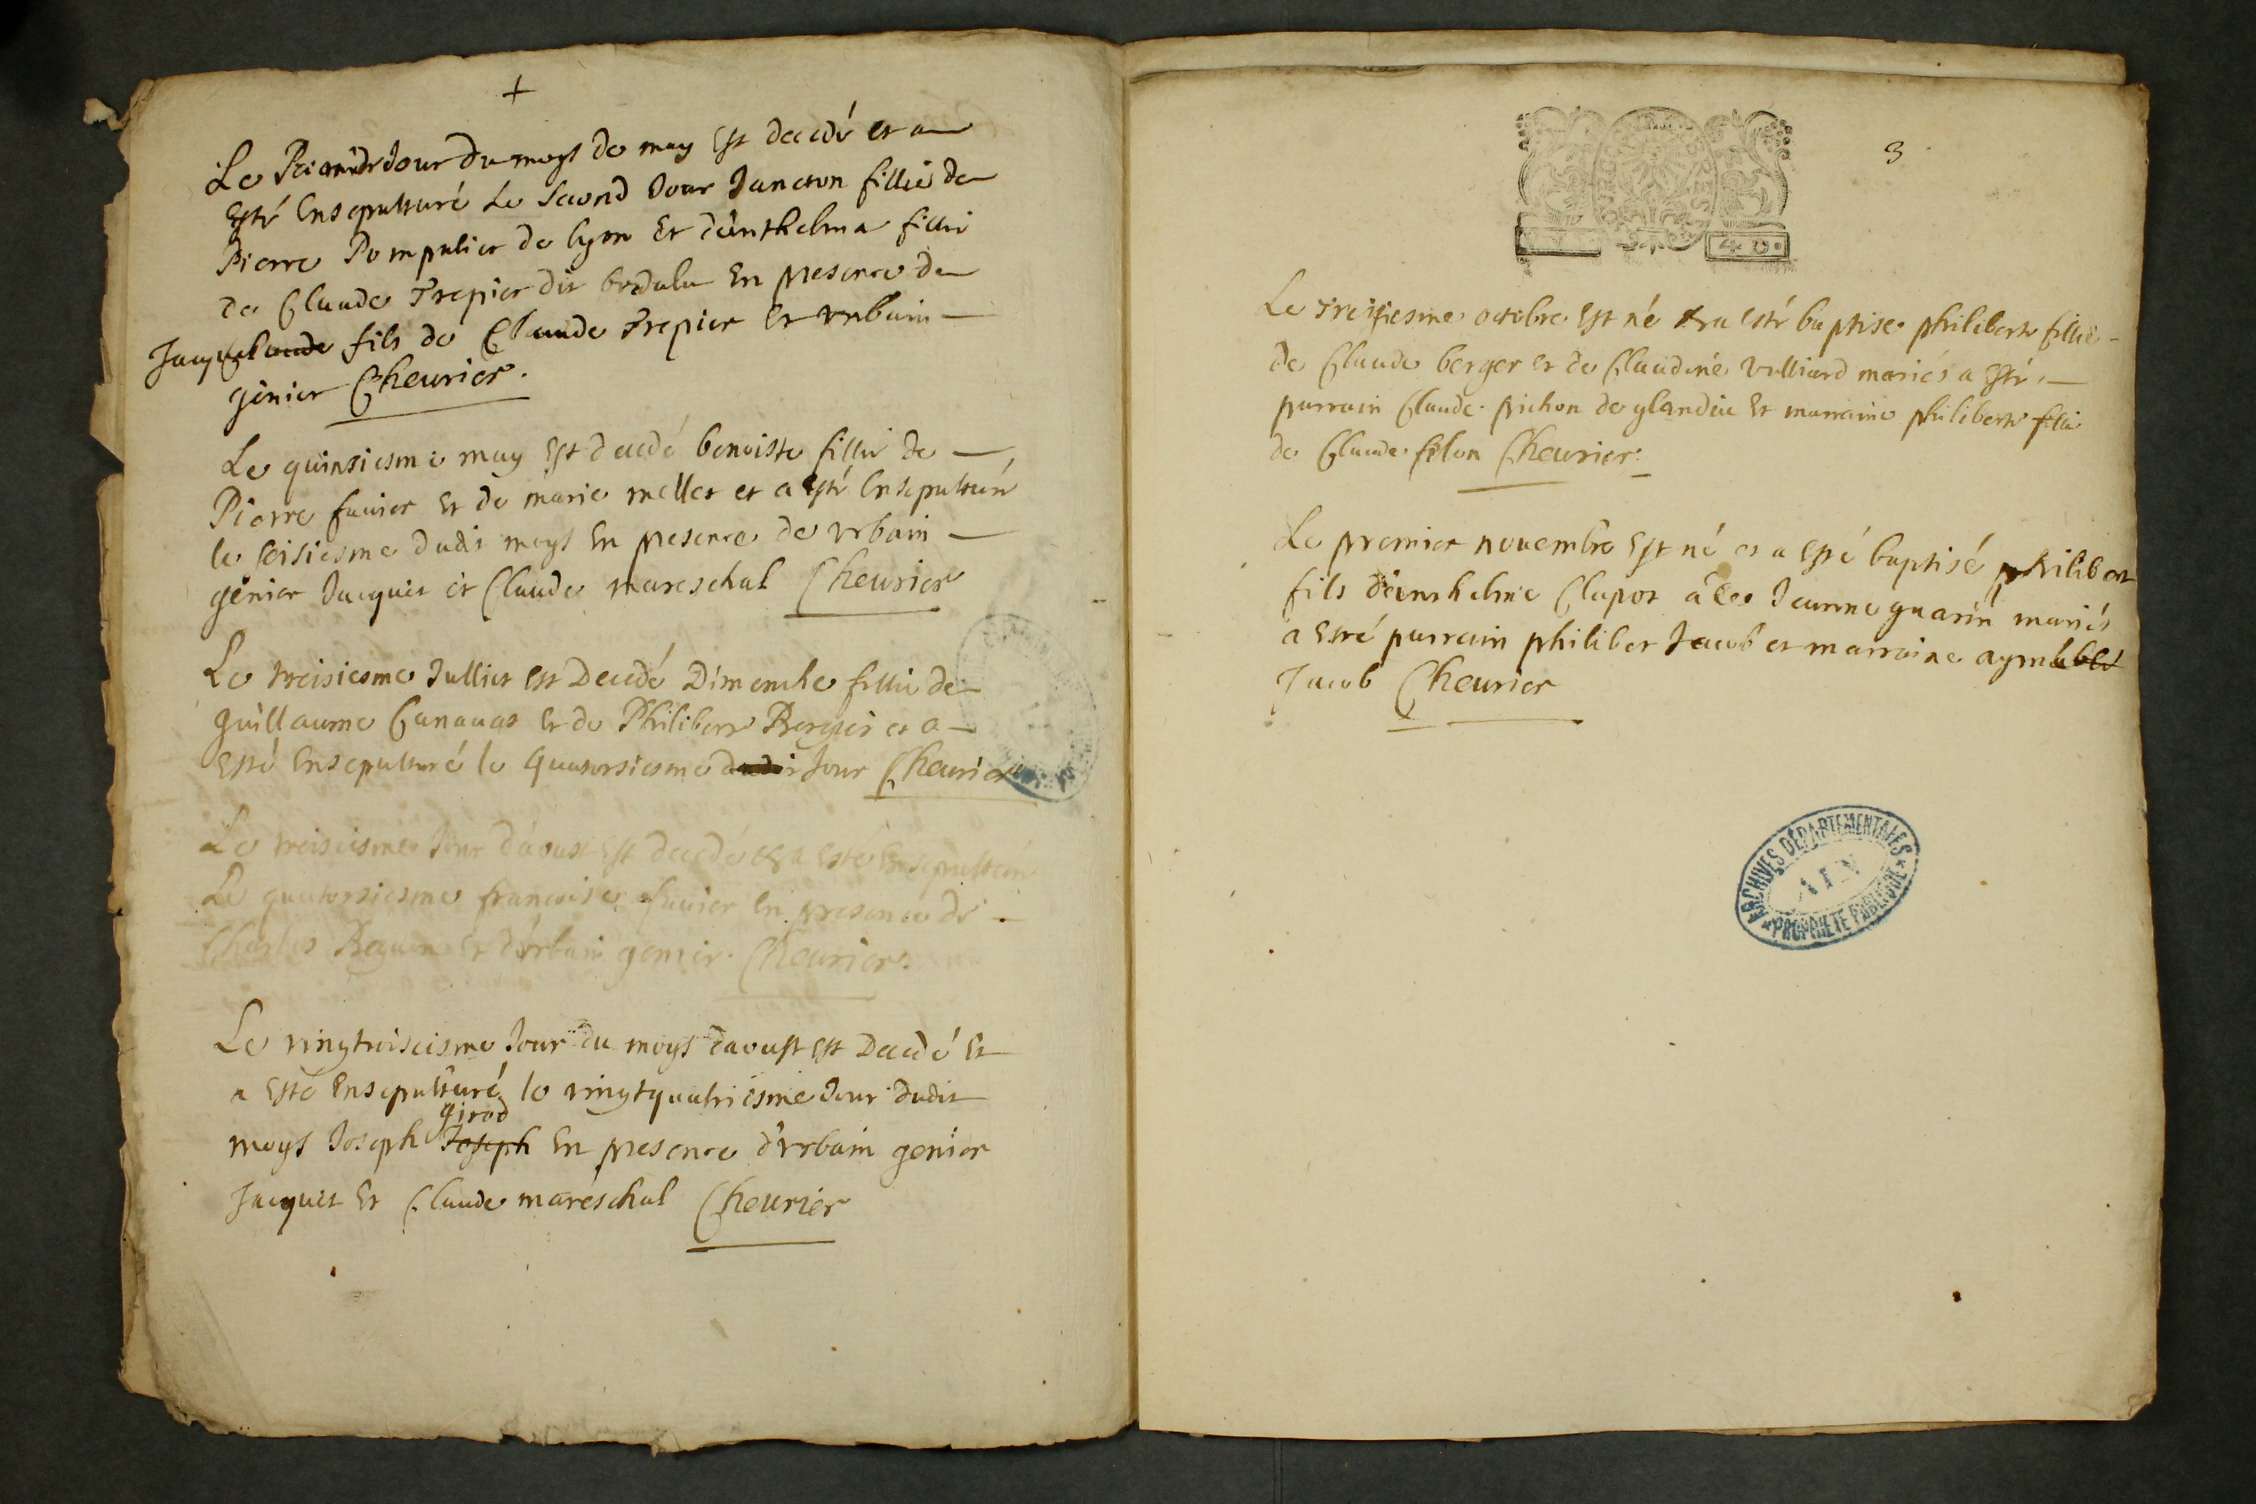 Le Premier Jour du moys de may Est decedé et a
Esté Ensepulturé Le Second Jour Janeton fillie de
Pierre Pompulier de lyon Et d'anthelma fillie
de Claude Trepier dit En presence de
Jacque fils de Claude Trepier Et vrbain
genier Cheurier.
Le quinsiesme may Est decedé benoiste fillie de
Pierre fauier Et de marie mellet et a Esté Ensepulturé
le seisiesme dudit moys En presence de vrbain
genier Jacquet et Claude mareschal Cheurier
Le treisiesme Jullier Est Decedé Dimenche fillie de
Guillaume Canauas Et de Philiberte et a
Esté Ensepulturé le Quatorsiesme Jour Cheurier
Le treisiesme Jour d'aoust Est decedé & a Esté Ensepulturé
Le quatorsiesme francoise fauier En presence de
Charles Et d'vrbain genier. Cheurier.
Le vingtroisiesme Jour du moys daoust Est Decedé Et
a Esté Ensepulturé le vingtquatriesme Jour dudit
girod
moys Joseph Joseph En presence d'vrbain genier
Jacquet Et Claude mareschal Cheurier
3
Le treisiesme octobre Est né & a esté baptise philiberte fillie
de Claude berger et de Claudine Vulliard mariés a Esté
parrain Claude pichon de glandieu Et marraine philiberte fillie
de Claude Cheurier.
Le premier nouembre Est né et a Esté baptisé philibert
fils d'anthelme Clapot Jeanne guarin mariés
a Esté parrain philiber Jacob et marraine
Jacob Cheurier
ARCHIVES DÉPARTEMENTALES
AIN
PROPRIÉTÉ PUBLIQUE